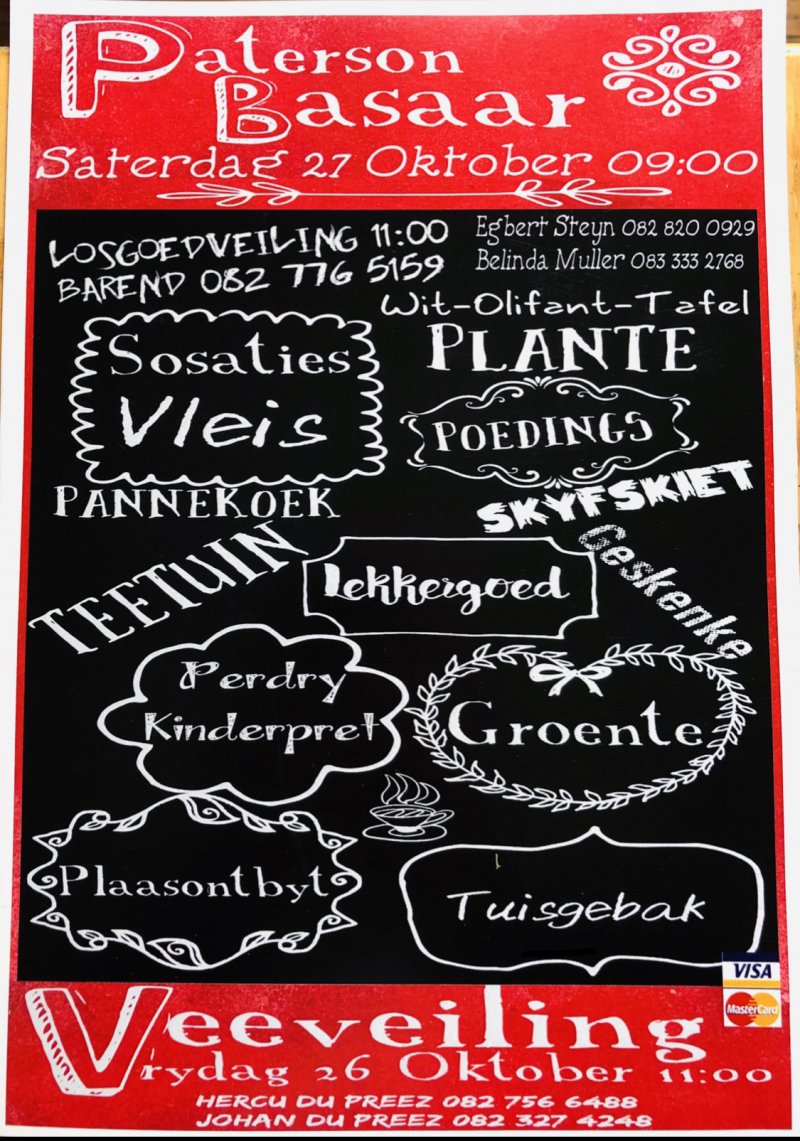 Paterson
Basaar
Saterdag 27 Oktober 09:00
LOSGOEDVEILING 11:00
BAREND 082 776 5159
Egbert Steyn 082 820 0929
Belinda Muller 083 333 2768
Wit-Olifant-Tafel
Sosaties
Vleis
PLANTE
POEDINGS
PANNEKOEK
SKYFSKIET
TEETUIN
Lekkergoed
Geskenke
Perdry
Kinderpret
Groente
Plaasontbyt
Tuisgebak
VISA
MasterCard
Veeveiling
Vrydag 26 Oktober 11:00
HERCU DU PREEZ 082 756 6488
JOHAN DU PREEZ 082 327 4248